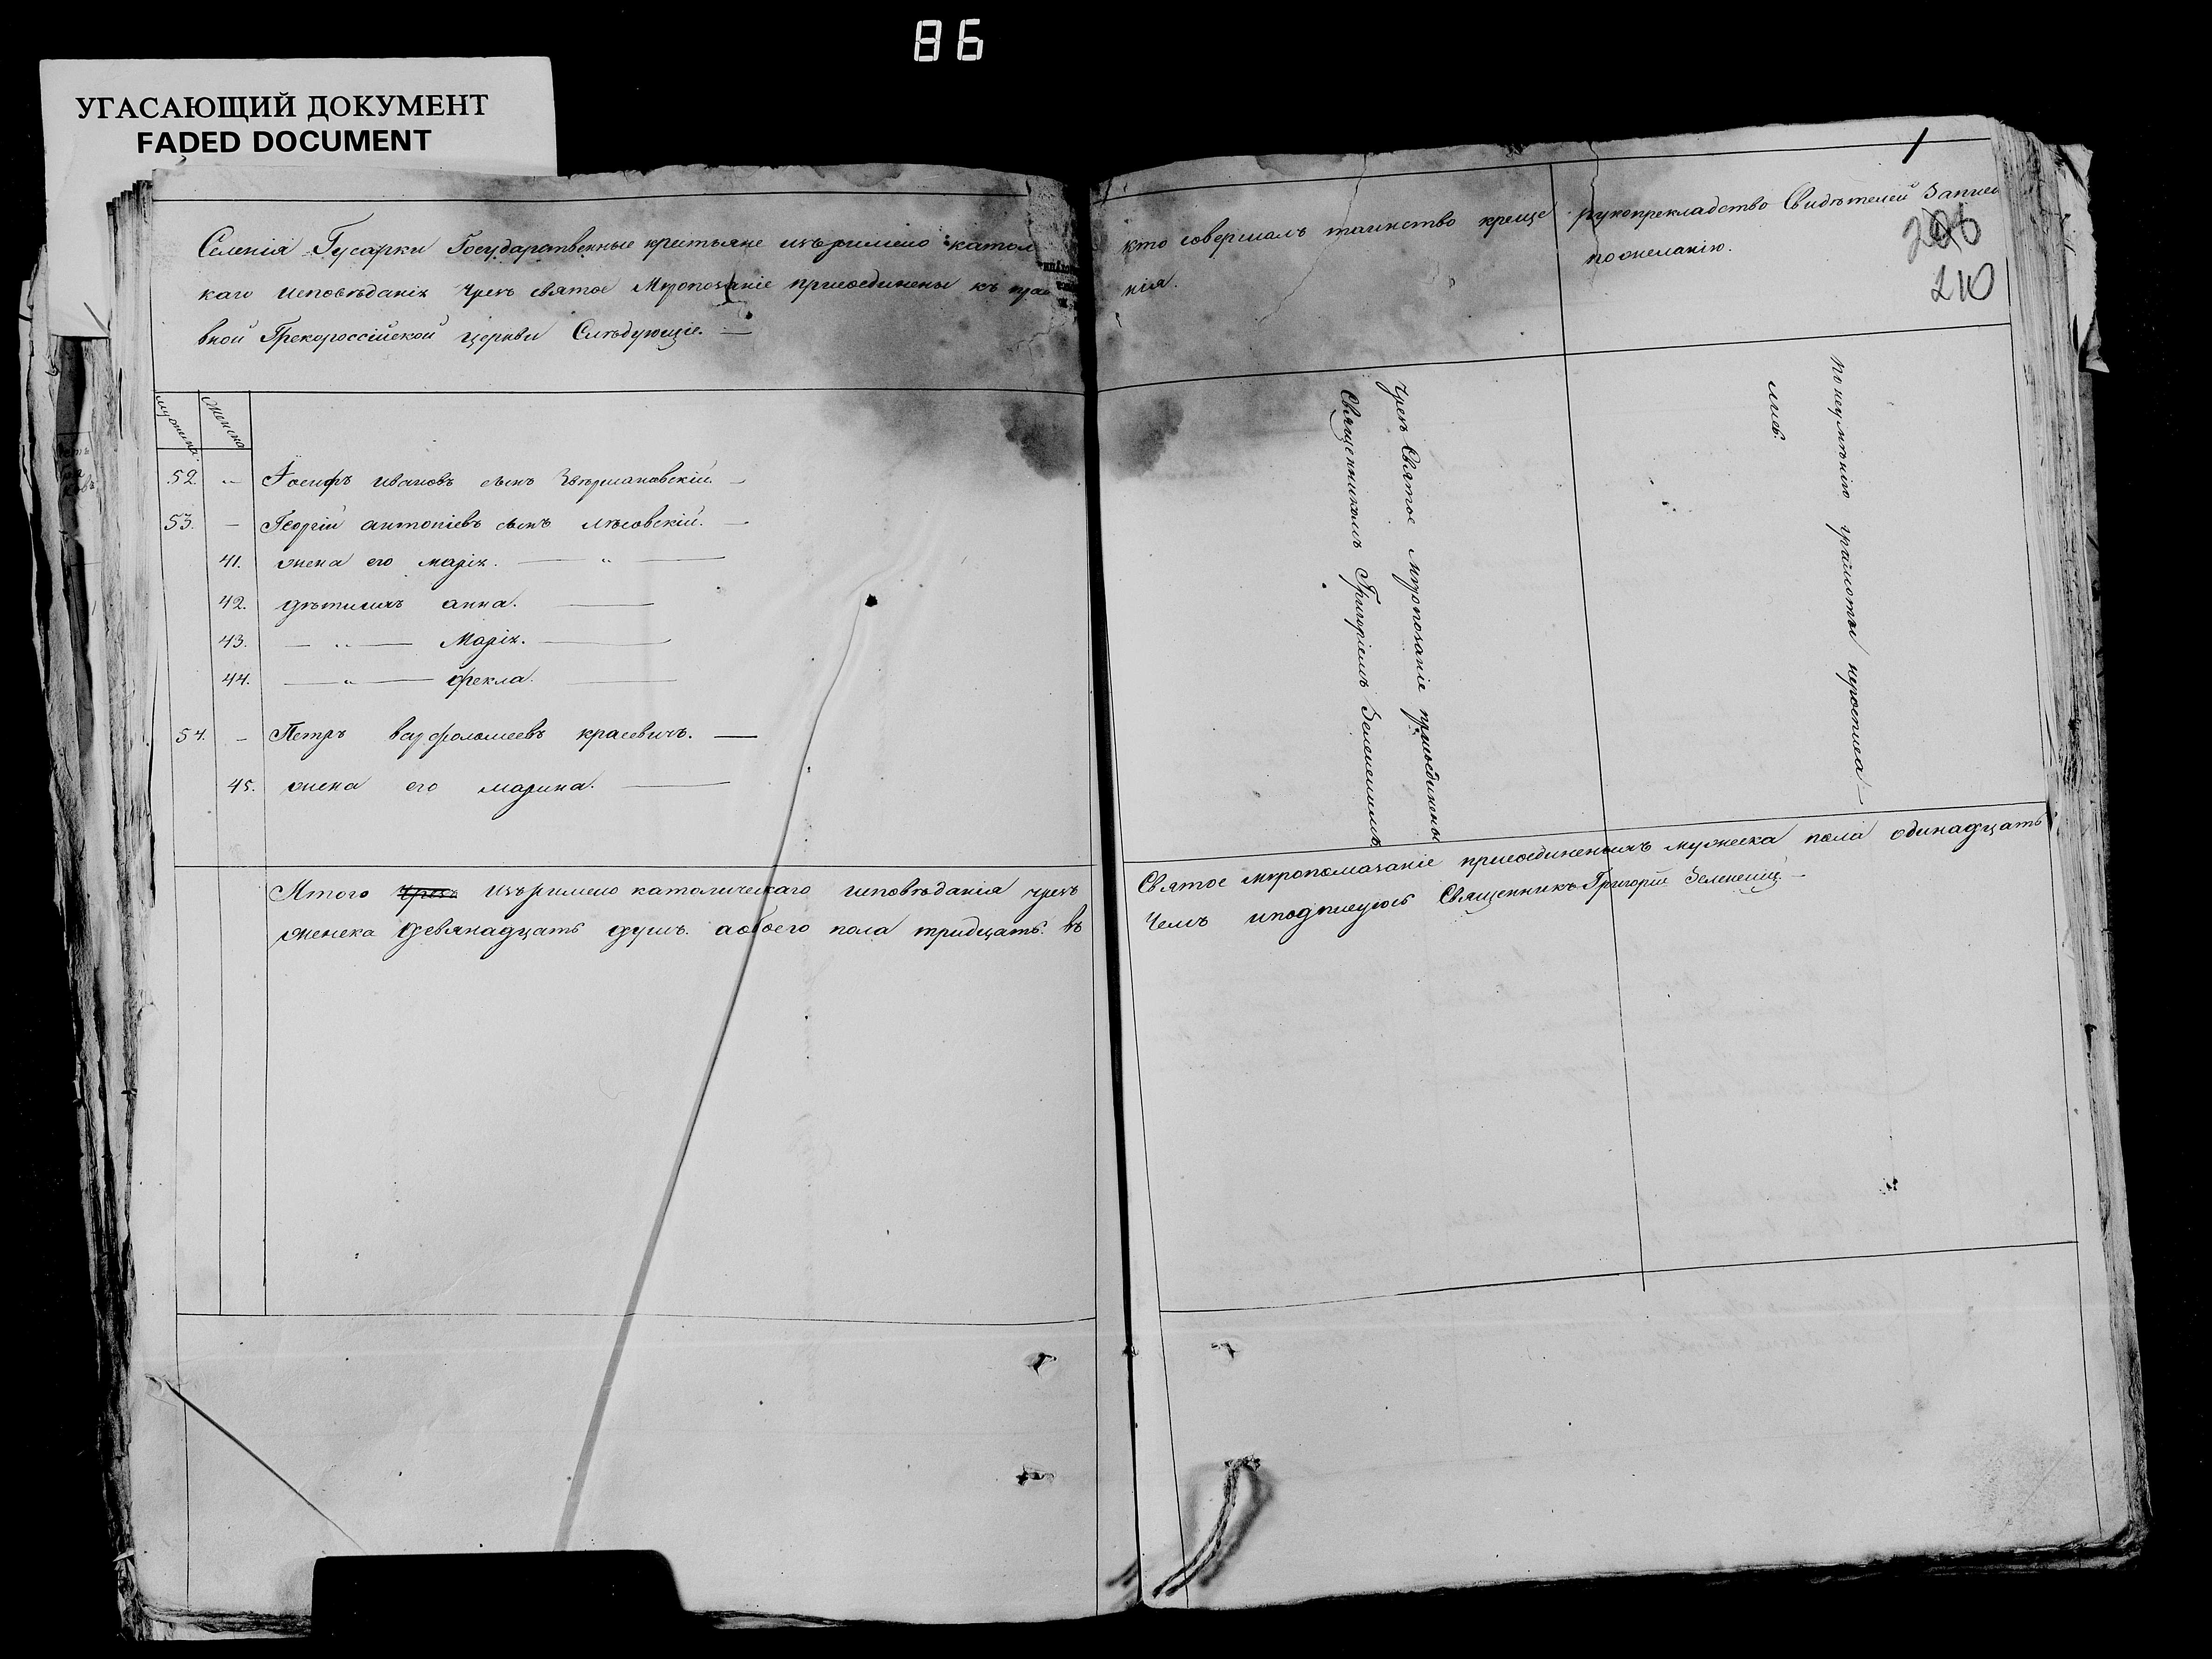 86
УГАСАЮЩИЙ ДОКУМЕНТ
FADED DOCUMENT
Селенія Гусарки Государственные крестьяне изъримско катол
каго исповѣданія чрезъ святое Мѵропозаніе присоединены къ пра
вной Грекороссійской церкви Слѣдующіе. —
мужеска.
Женска
52. „ Іосифъ ивановъ сынъ
53. — Георгій антоніевъ сынъ лѣсовскій. —
41. жена его марія. — „ —
42. дѣти ихъ анна. —
43. — „ — Марія. —
44. — „ — фекла. —
54. — Петръ варфоломеевъ красевичъ. —
45. жена его марина. —
Итого чрезъ изъримско католическаго исповѣданія чрезъ
женска девянадцать душъ. аобоего пола тридцать. въ
1
кто совершалъ таинство креще
нія.
рукоприкладство Свидѣтелей Записи
пожеланію.
206
210
Чрезъ Святое мѵропозаніе присоединены
Священникомъ Григоріемъ
По неумѣнію грамоты
Святое мѵропомазаніе присоединенныхъ мужеска пола одинадцать
Чемъ иподписуюсь Священникъ Григорій